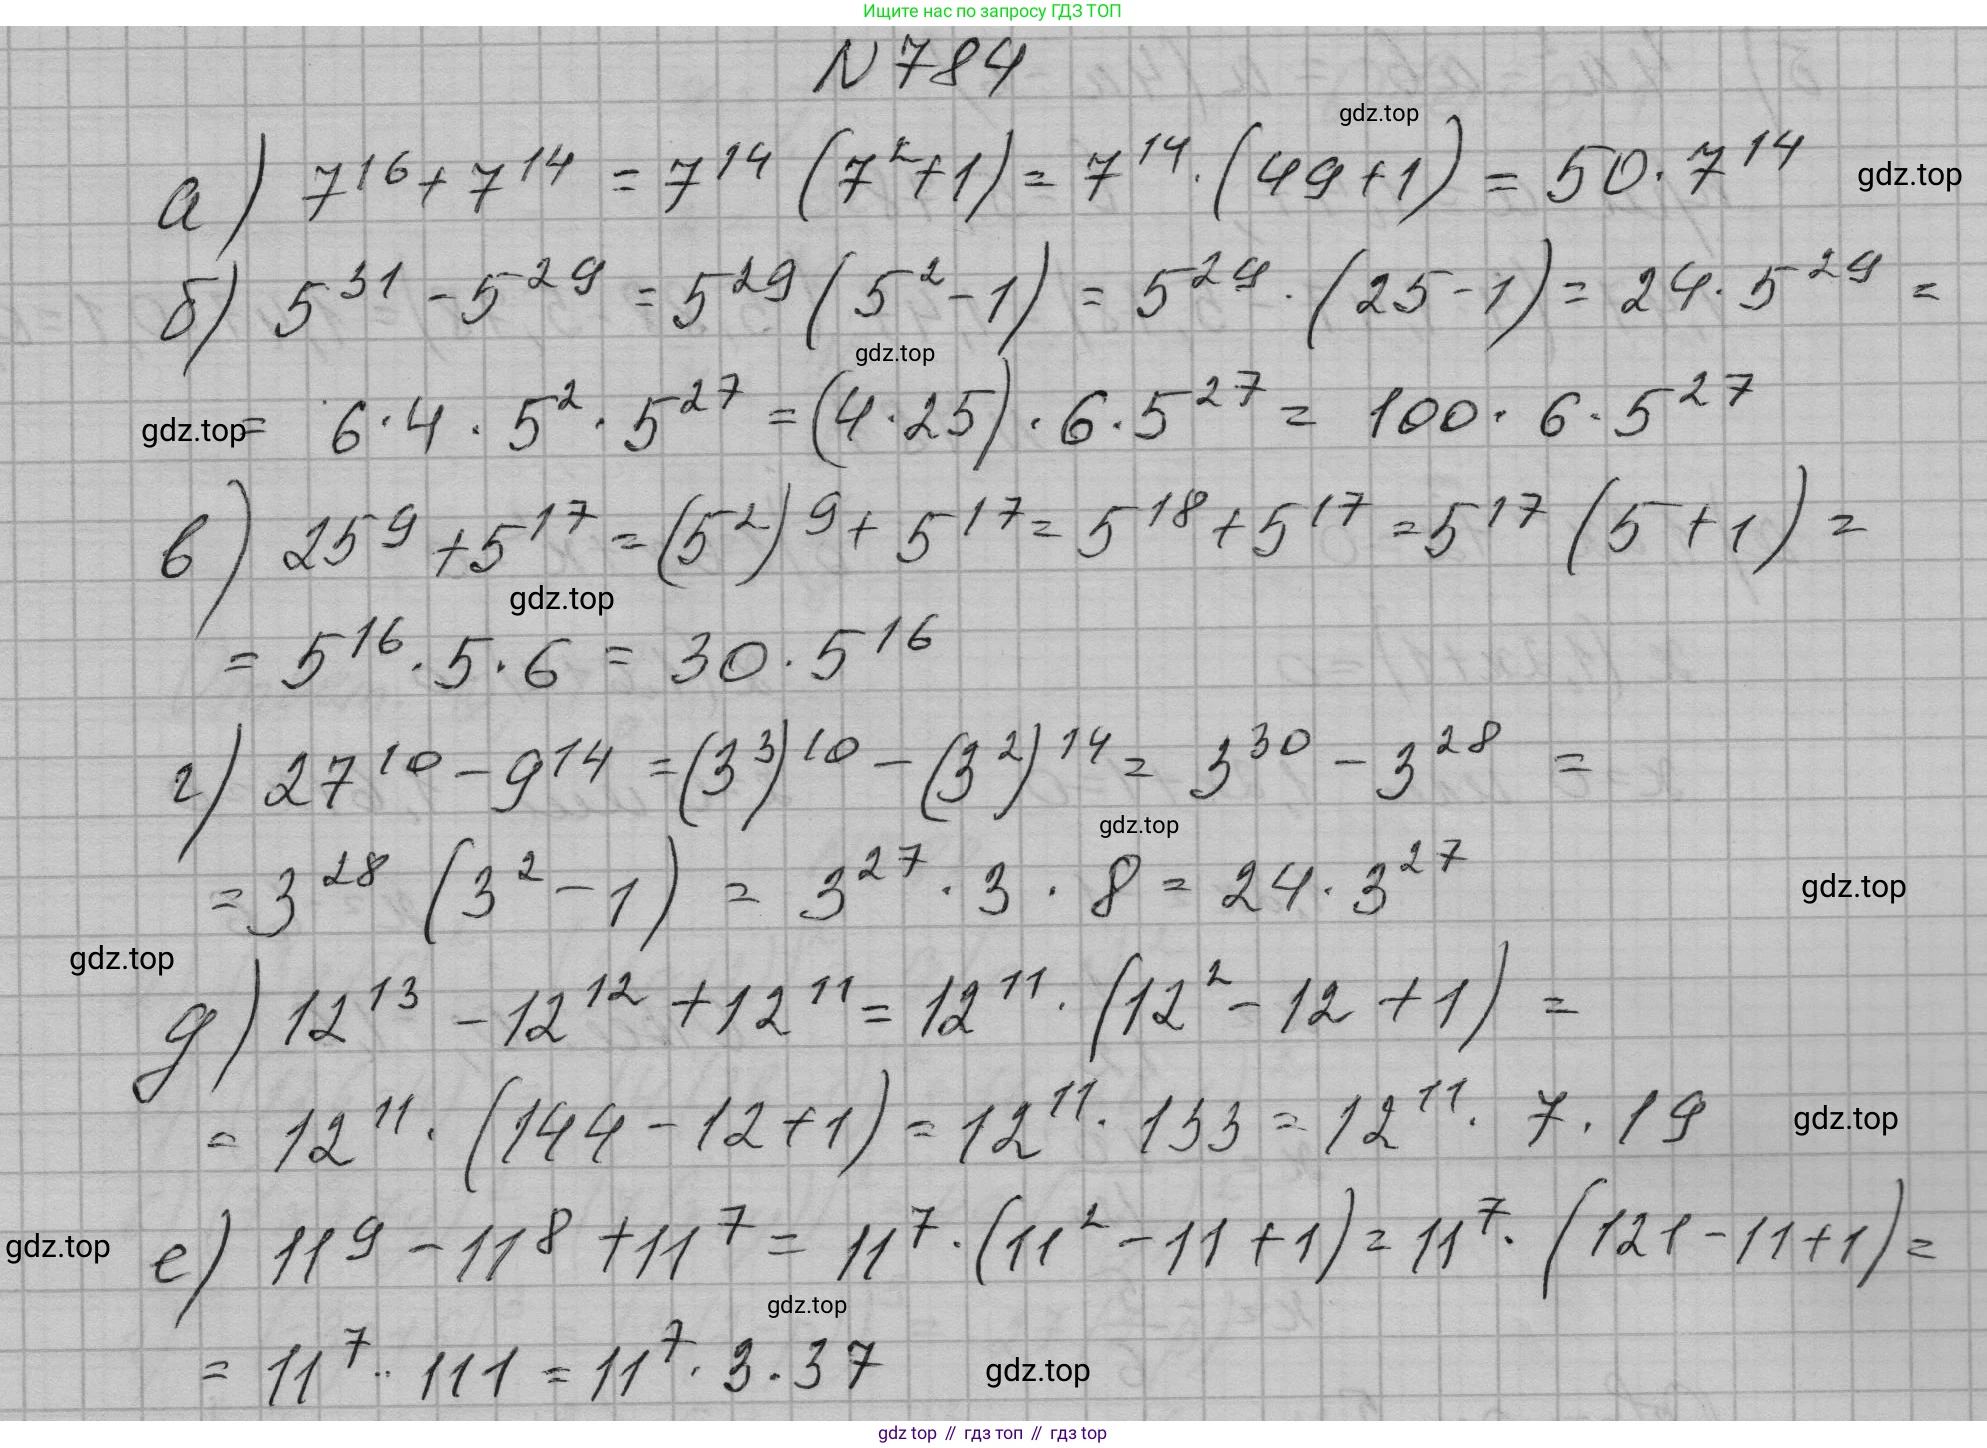 Ищите нас по запросу ГДЗ ТОП
N 784
gdz.top
а) 7^16 + 7^14 = 7^14 (7^2 + 1) = 7^14 · (49 + 1) = 50 · 7^14
gdz.top
б) 5^31 - 5^29 = 5^29 (5^2 - 1) = 5^29 · (25 - 1) = 24 · 5^29 =
gdz.top
gdz.top
= 6 · 4 · 5^2 · 5^27 = (4 · 25) · 6 · 5^27 = 100 · 6 · 5^27
в) 25^9 + 5^17 = (5^2)^9 + 5^17 = 5^18 + 5^17 = 5^17 (5 + 1) =
gdz.top
= 5^16 · 5 · 6 = 30 · 5^16
г) 27^10 - 9^14 = (3^3)^10 - (3^2)^14 = 3^30 - 3^28 =
gdz.top
= 3^28 (3^2 - 1) = 3^27 · 3 · 8 = 24 · 3^27
gdz.top
gdz.top
д) 12^13 - 12^12 + 12^11 = 12^11 · (12^2 - 12 + 1) =
= 12^11 · (144 - 12 + 1) = 12^11 · 133 = 12^11 · 7 · 19
gdz.top
gdz.top
е) 11^9 - 11^8 + 11^7 = 11^7 · (11^2 - 11 + 1) = 11^7 · (121 - 11 + 1) =
gdz.top
= 11^7 · 111 = 11^7 · 3 · 37
gdz.top
gdz top // гдз топ // гдз top